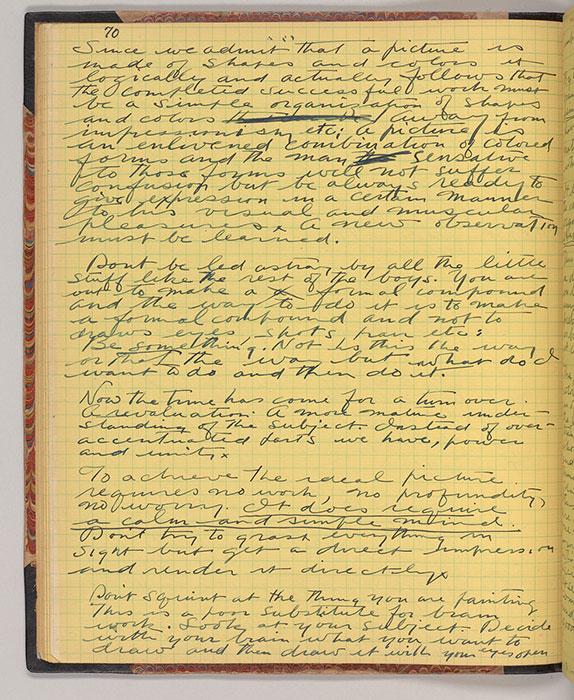 70
Since we admit that a picture is
made of shapes and colors it
logically and actually follows that
the completed successful work must
be a simple organization of shapes
and colors away from
impressionism etc; a picture is
an enlivened combination of colored
forms and the man sensative
to those forms will not suffer
confusion but be always ready to
give expression in a certain manner
to his visual and muscular
pleasures. A new observation
must be learned.
Dont be led astray by all the little
stuff like the rest of the boys. You are
out to make a formal compound
and the way to do it is to make
a formal compound and not to
draw eyes spots etc;
Be something. Not is this the way
or that the way but what do I
want to do and then do it.
Now the time has come for a turn over.
A revaluation. A more mature under-
standing of the subject. Instead of over-
accentuated darts we have, power
and unity.
To achieve the ideal picture
requires no work, no profundity,
no worry. It does require
a calm and simple mind.
Dont try to grasp everything in
sight but get a direct impression
and render it directly
Dont squint at the thing you are painting
This is a poor substitute for brain
work. Look at your subject. Decide
with your brain what you want to
draw and then draw it with your eyes open